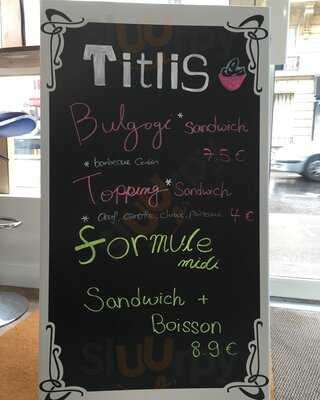 TitliS
Bulgogi* Sandwich
* barbecue Coréen
7.5€
Topping* Sandwich
* Oeuf, carotte, choux,
4€
formule
midi
Sandwich +
Boisson
8.9€